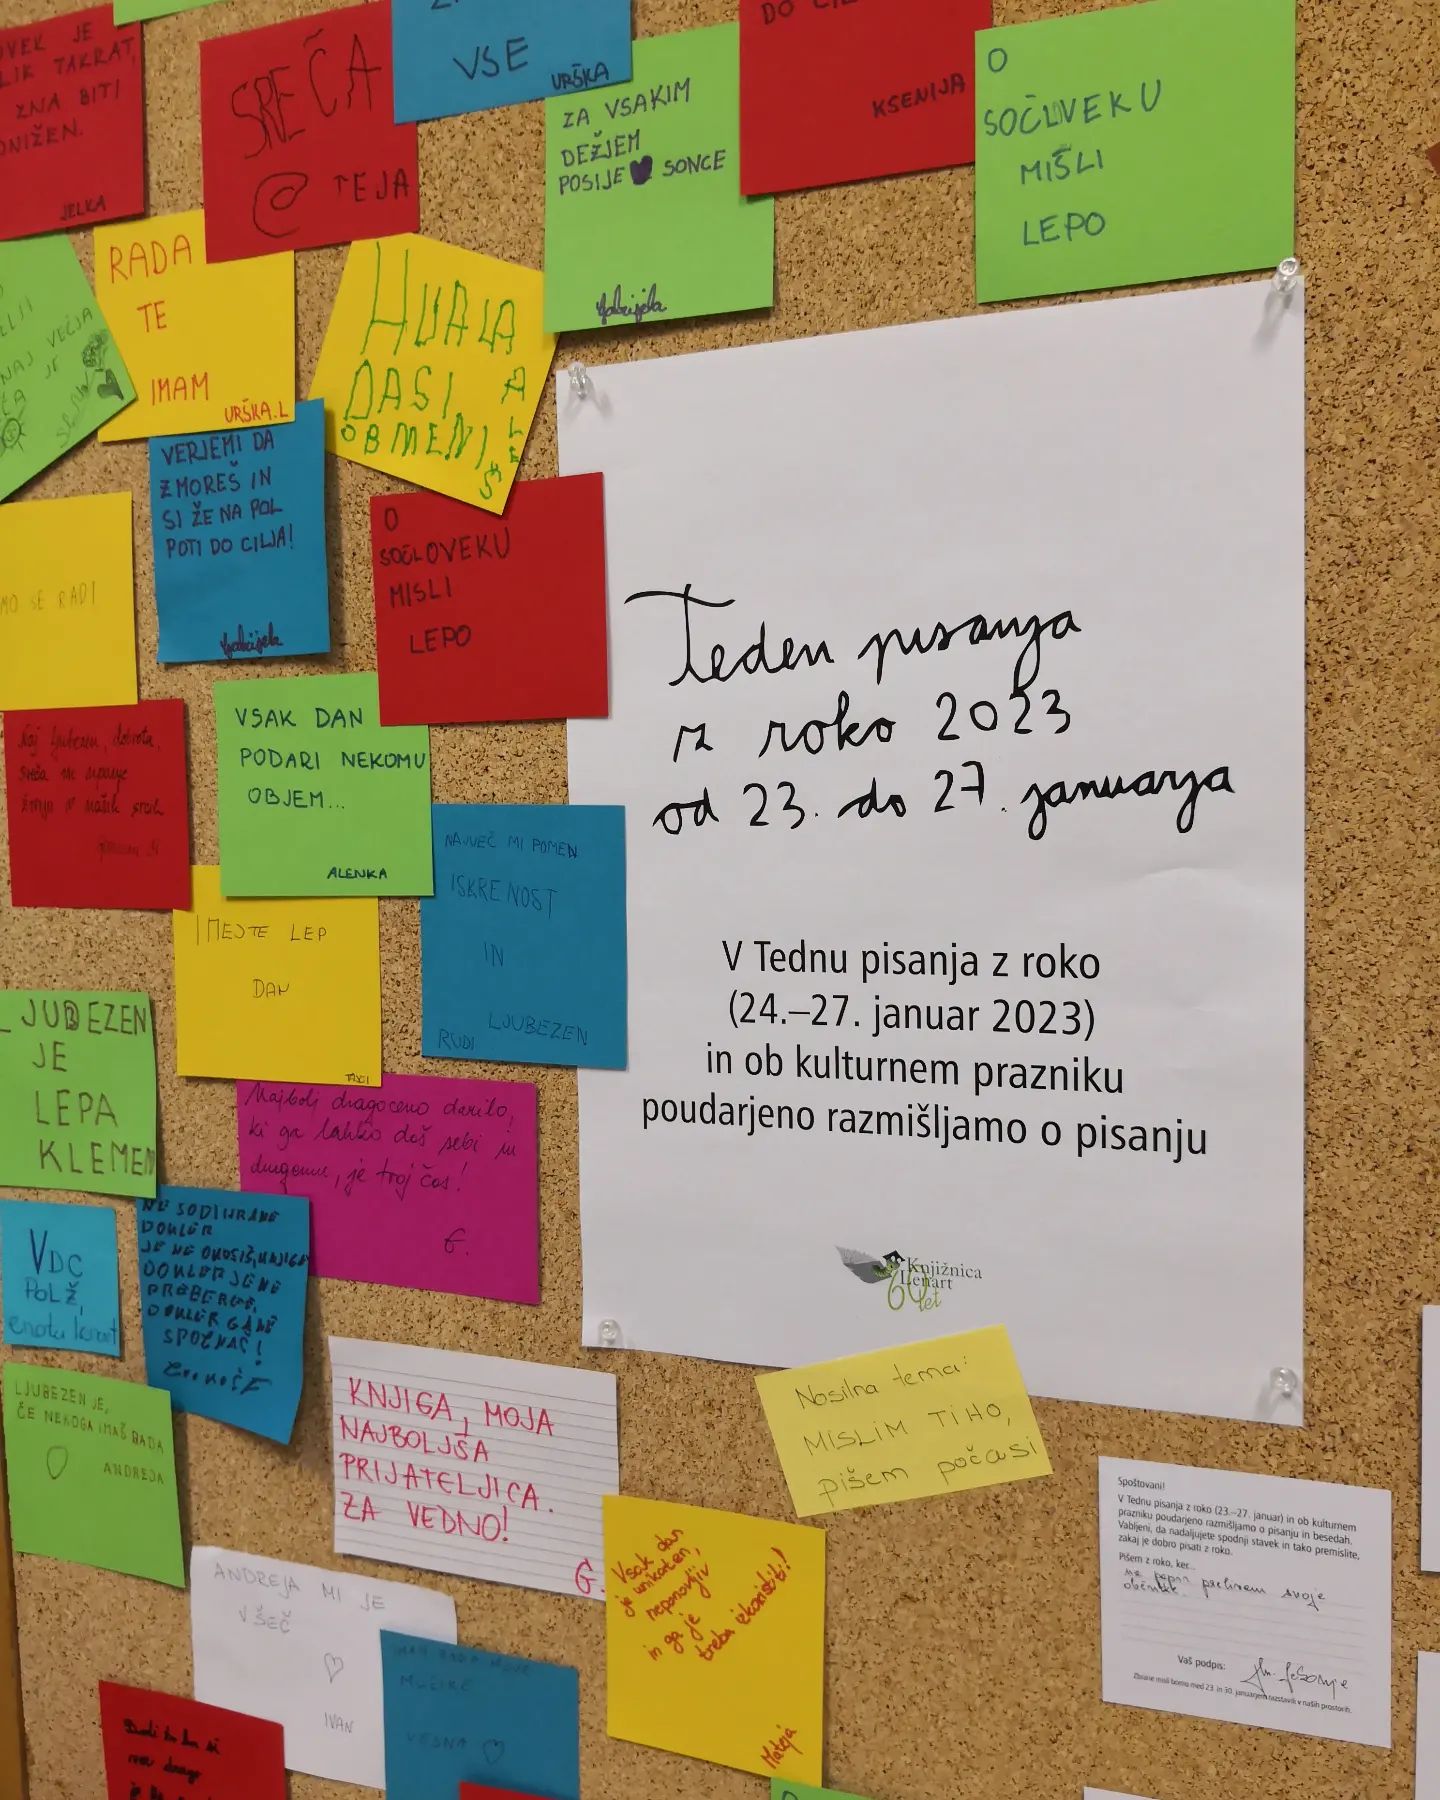 VEK JE
LIK TAKRAT,
ZNA BITI
ONIŽEN.
JELKA
SREČA
@ TEJA
VSE
URŠKA
ZA VSAKIM
DEŽJEM
POSIJE SONCE
Gabrijela
DO
KSENIJA
O
SOČLOVEKU
MIŠLI
LEPO
NAJ VEČJA
JE
RADA
TE
IMAM
URŠKA.L
HVALA
DA SI
OBMENI
ALEŠ
VERJEMI DA
ZMOREŠ IN
SI ŽE NA POL
POTI DO CILJA!
Gabrijela
O
SOČLOVEKU
MISLI
LEPO
MO SE RADI
Naj ljubezen, dobrota,
sreča in upanje
živijo v naših srcih
VSAK DAN
PODARI NEKOMU
OBJEM...
ALENKA
NAJVEČ MI POMEN
ISKRENOST
IN
LJUBEZEN
RUDI
IMEJTE LEP
DAN
LJUBEZEN
JE
LEPA
KLEMEN
Najbolj dragoceno darilo,
ki ga lahko daš sebi in
drugemu, je tvoj čas!
G.
VDC
POLŽ,
enota Lenart
NE SODI
DOKLER
JE NE OKUSIŠ, KNJIGE
DOKLER JE NE
PREBEREŠ,
DOKLER GA NE
SPOZNAŠ!
LJUBEZEN JE,
ČE NEKOGA IMAŠ RADA
ANDREJA
KNJIGA, MOJA
NAJBOLJŠA
PRIJATELJICA.
ZA VEDNO!
G.
ANDREJA MI JE
VŠEČ
IVAN
VESNA
Vsak dan
je unikaten,
neponovljiv
in ga je
treba izkoristiti!
Mateja
Teden pisanja
z roko 2023
od 23. do 27. januarja
V Tednu pisanja z roko
(24.–27. januar 2023)
in ob kulturnem prazniku
poudarjeno razmišljamo o pisanju
Knjižnica
Lenart
60 let
Nosilna tema:
MISLIM TIHO,
pišem počasi
Spoštovani!
V Tednu pisanja z roko (23.–27. januar) in ob kulturnem
prazniku poudarjeno razmišljamo o pisanju in besedah.
Vabljeni, da nadaljujete spodnji stavek in tako premislite,
zakaj je dobro pisati z roko.
Pišem z roko, ker...
na papir prelivam svoje
občutke.
Vaš podpis:
Zbrane misli bomo med 23. in 30. januarjem razstavili v naših prostorih.